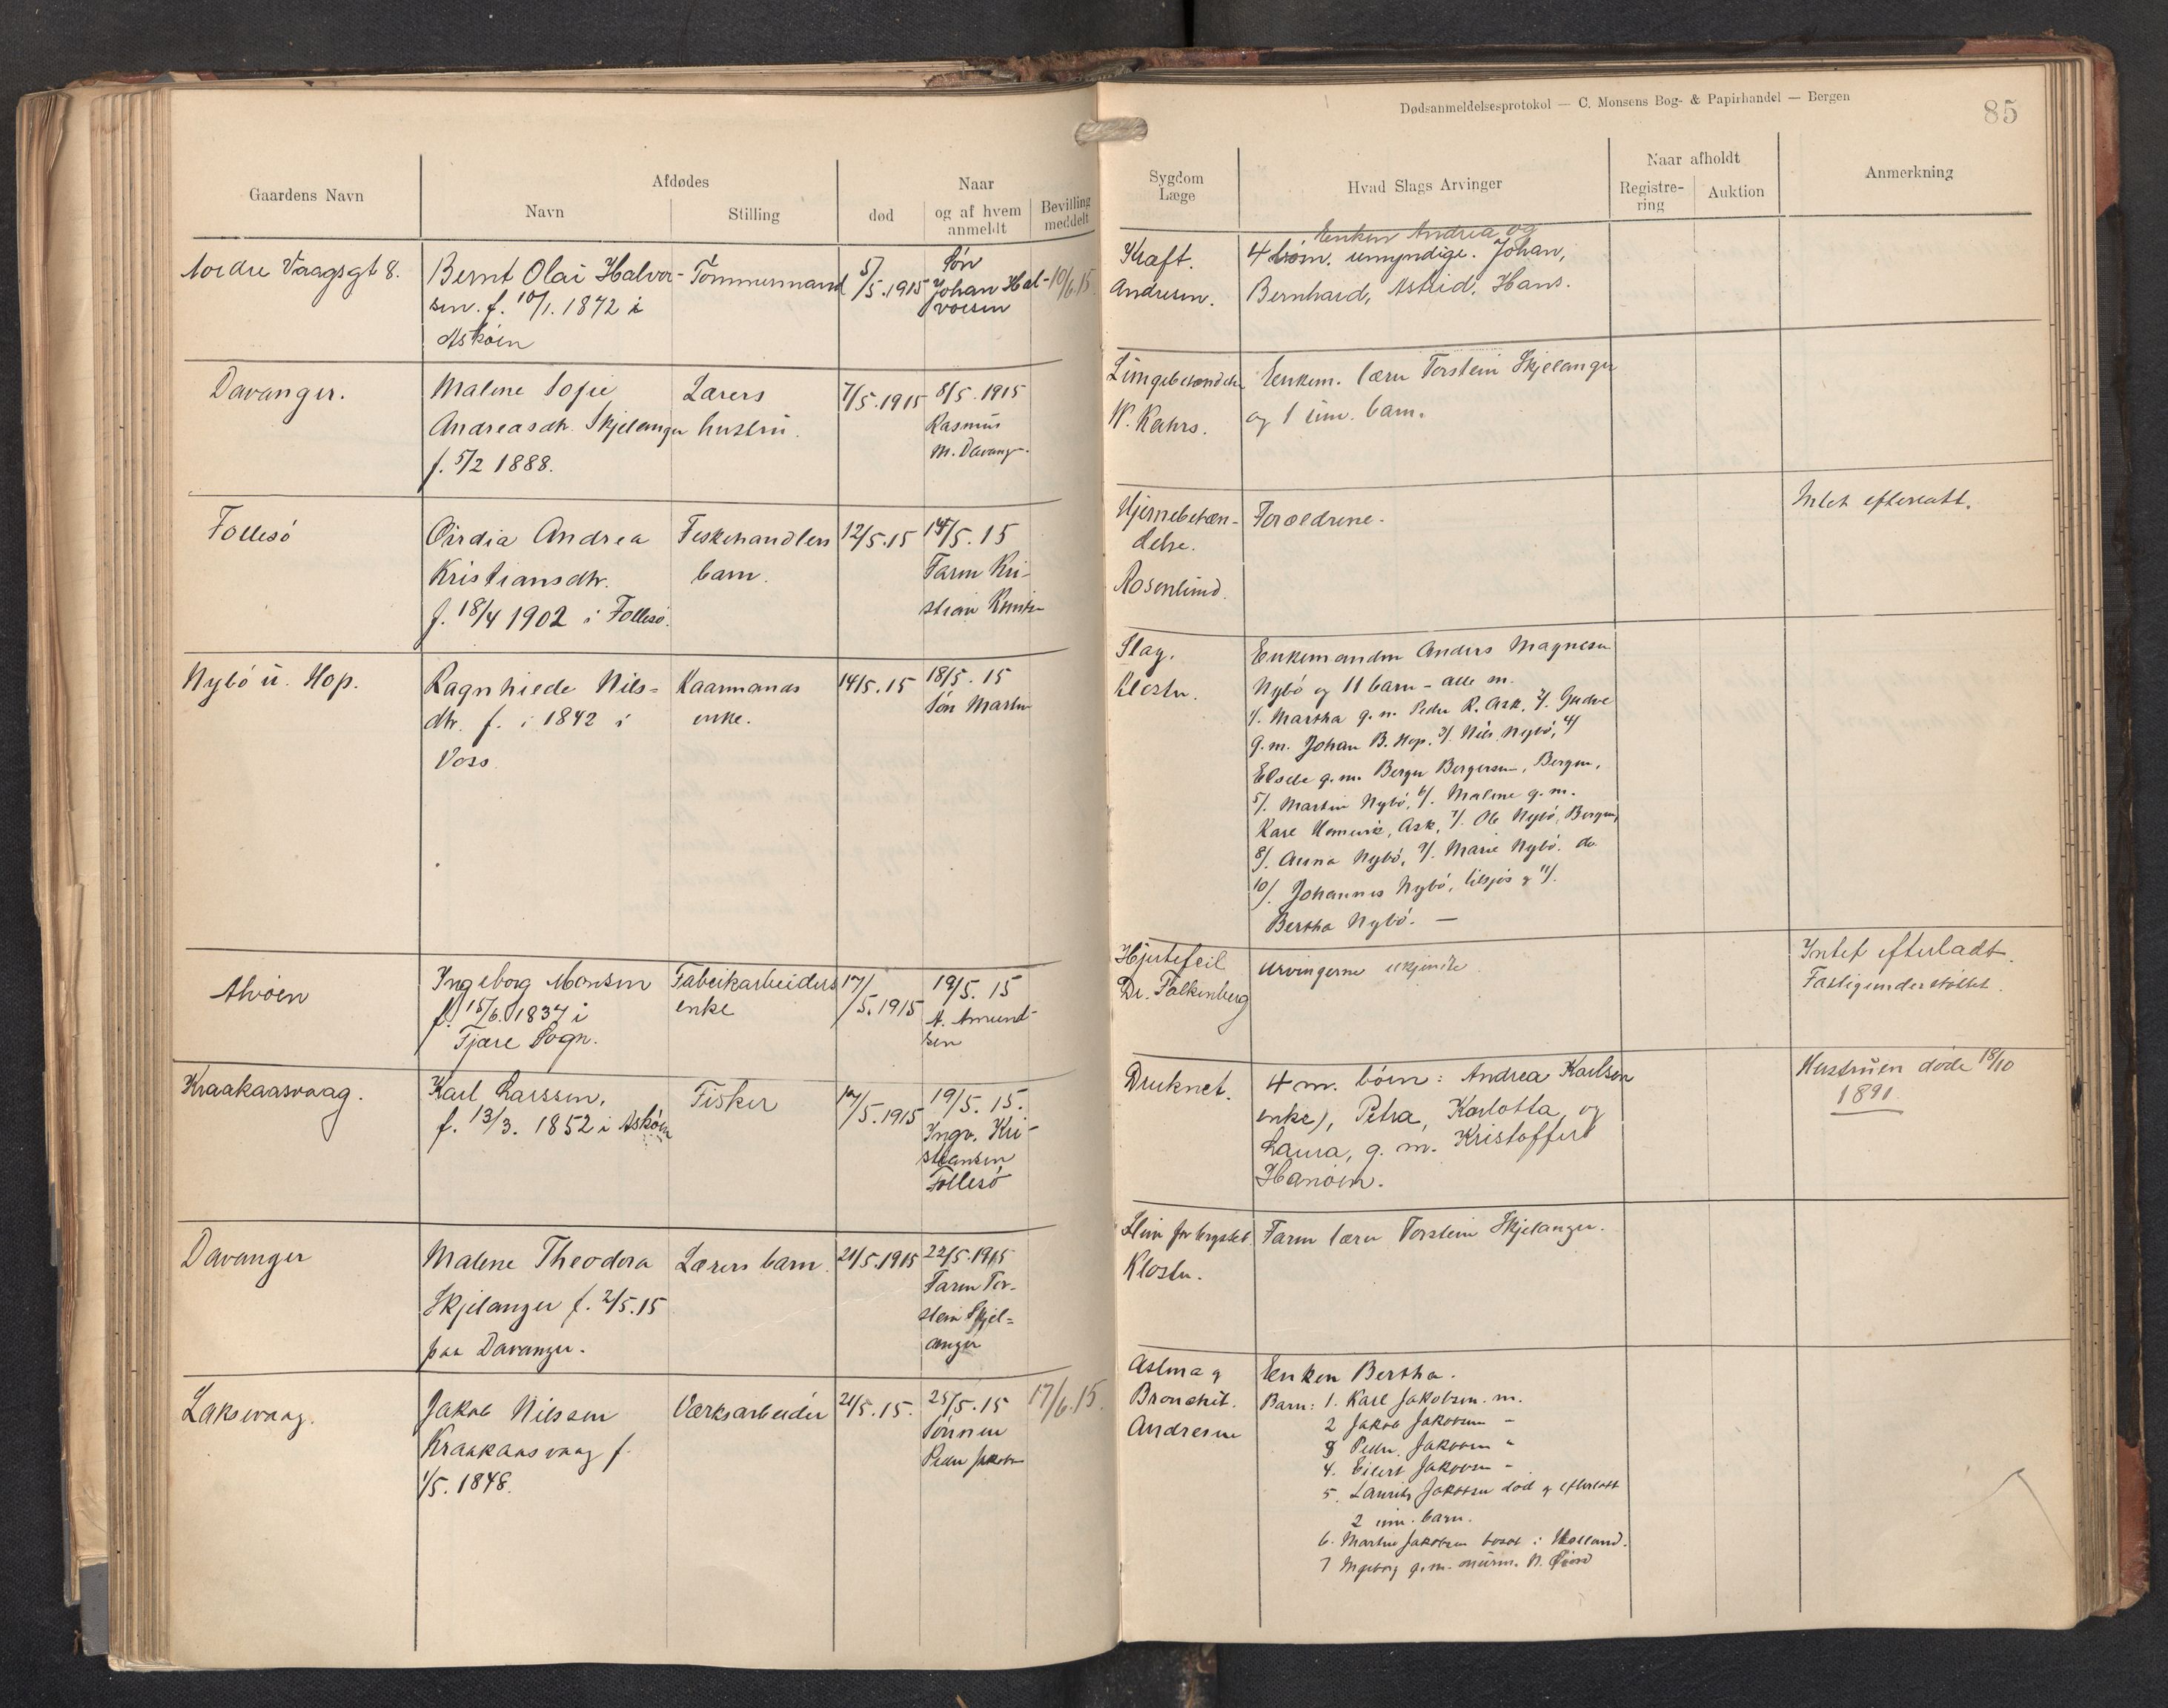 Dødsanmeldelsesprotokol — C. Monsens Bog- & Papirhandel — Bergen
85
Gaardens Navn
Afdødes
Navn
Stilling
død
Naar
og af hvem
anmeldt
Bevilling
meddelt
Sygdom
Læge
Hvad Slags Arvinger
Naar afholdt
Registre-
ring
Auktion
Anmerkning
Nordre Vaagsgt 8.
Bernt Olai Halvor-
sen. f. 10/1. 1872 i
Askøen
Tømmermand
5/5. 1915
Søn
Johan Hal-
vorsen
10/6.15
Kræft.
Andresen.
Enken Andrea og
4 børn. umyndige. Johan,
Bernhard, Astrid, Hans.
Davanger.
Malene Sofie
Andreasdtr. Skjelanger
f. 5/2 1888.
Lærers
hustru.
7/5.1915
8/5.1915
Rasmus
M. Davang.
Lungebetændelse
W. Kahrs.
Enkem. lærer Torstein Skjelanger
og 1 um. barn.
Follesø
Andrea
Kristiansdtr.
f. 18/4 1902 i Follesø.
Fiskehandlers
barn.
12/5.15
14/5.15
Faren Kri-
stian
Hjernebetæn-
delse.
Rosenlund.
Forældrene.
Intet efterladt.
Nybø u. Hop.
Ragnhilde Nils-
dtr. f. i 1842 i
Voss
Kaarmands
enke.
14/5.15
18/5.15
Søn Martin
Slag.
Kloster.
Enkemanden Anders Magnesen
Nybø og 11 barn - alle m.
1/. Martha g. m. Peder R. Ask, 2/. Gudve
g. m. Johan B. Hop. 3/. Nils Nybø, 4/
g. m. Berger Bergersen, Bergen,
5/. Martin Nybø, 6/. Malene g. m.
Karl, Ask, 7/. Ole Nybø, Bergen,
8/. Anna Nybø, 9/. Marie Nybø. do
10/. Johannes Nybø, tilsjøs og 11/.
Bertha Nybø. —
Alvøen
Ingeborg Monsen
f. 15/6. 1837 i
Fjære Sogn.
Fabrikarbeiders
enke
17/5.1915
19/5.15
A. Amund-
sen
Hjertefeil
Dr. Falkenberg
Arvingerne ukjendte
Intet efterladt.
Fattigunderstøttet.
Kraakaasvaag.
Karl Larssen,
f. 13/3. 1852 i Askøen
Fisker
17/5.1915
19/5.15.
Ingv. Kri-
stiansen
Follesø
Druknet.
4 m. børn: Andrea Karlsen
enke), Petra, Karlotta, og
Laura, g. m. Kristoffer
Hanøen.
Hustruen døde 18/10
1891.
Davanger
Malene Theodora
Skjelanger f. 2/5.15
paa Davanger.
Lærers barn.
21/5.1915
22/5.1915
Faren Tor-
stein Skjel-
anger
Slim for brystet.
Kloster.
Faren lærer Torstein Skjelanger.
Laksevaag.
Jakob Nilssen
Kraakaasvaag f.
1/5. 1848.
Værksarbeider
21/5.15.
25/5.15
Sønnen
Peder Jakobsen
17/6.15.
Astma og
Bronchit.
Andresen
Enken Bertha.
Barn: 1. Karl Jakobsen m.
2 Jakob Jakobsen "
3 Peder Jakobsen "
4. Eilert Jakobsen "
5. Laurits Jakobsen død og efterladt
2 um. barn.
6. Martin Jakobsen bosat i Holland.
7 Ingeborg g. m. murm. N.